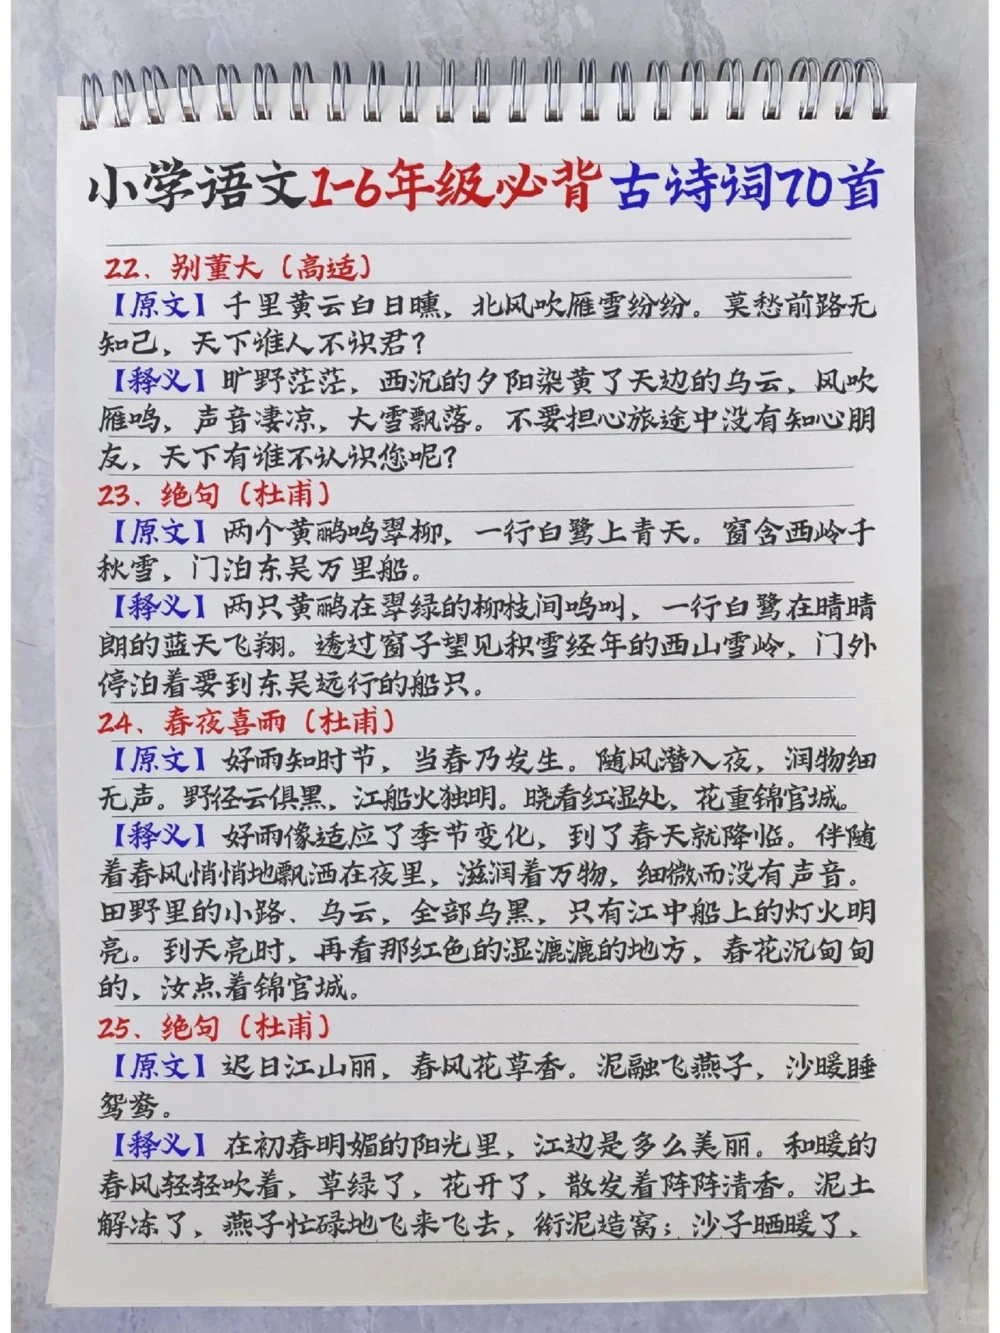 小学语文1-6年级必背古诗词70首
22、别董大（高适）
【原文】千里黄云白日曛，北风吹雁雪纷纷。莫愁前路无
知己，天下谁人不识君？
【释义】旷野茫茫，西沉的夕阳染黄了天边的乌云，风吹
雁鸣，声音凄凉，大雪飘落。不要担心旅途中没有知心朋
友，天下有谁不认识您呢？
23、绝句（杜甫）
【原文】两个黄鹂鸣翠柳，一行白鹭上青天。窗含西岭千
秋雪，门泊东吴万里船。
【释义】两只黄鹂在翠绿的柳枝间鸣叫，一行白鹭在晴晴
朗的蓝天飞翔。透过窗子望见积雪经年的西山雪岭，门外
停泊着要到东吴远行的船只。
24、春夜喜雨（杜甫）
【原文】好雨知时节，当春乃发生。随风潜入夜，润物细
无声。野径云俱黑，江船火独明。晓看红湿处，花重锦官城。
【释义】好雨像适应了季节变化，到了春天就降临。伴随
着春风悄悄地飘洒在夜里，滋润着万物，细微而没有声音。
田野里的小路、乌云，全部乌黑，只有江中船上的灯火明
亮。到天亮时，再看那红色的湿漉漉的地方，春花沉甸甸
的，汝点着锦官城。
25、绝句（杜甫）
【原文】迟日江山丽，春风花草香。泥融飞燕子，沙暖睡
鸳鸯。
【释义】在初春明媚的阳光里，江边是多么美丽。和暖的
春风轻轻吹着，草绿了，花开了，散发着阵阵清香。泥土
解冻了，燕子忙碌地飞来飞去，衔泥造窝；沙子晒暖了，